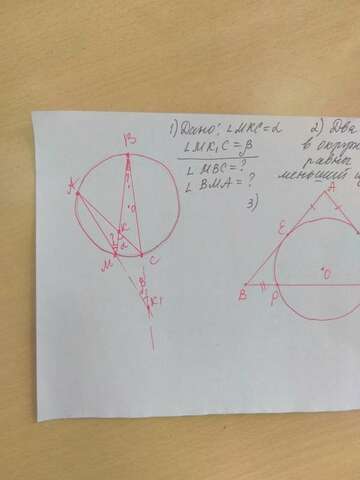 1) Дано: ∠MKC=α
∠MK₁C=β
∠MBC=?
∠BMA=?
2) Два
в окруж
равны
меньший и
3)
B
A
?
O
K
?
α
M
C
β
K₁
A
E
O
B
P